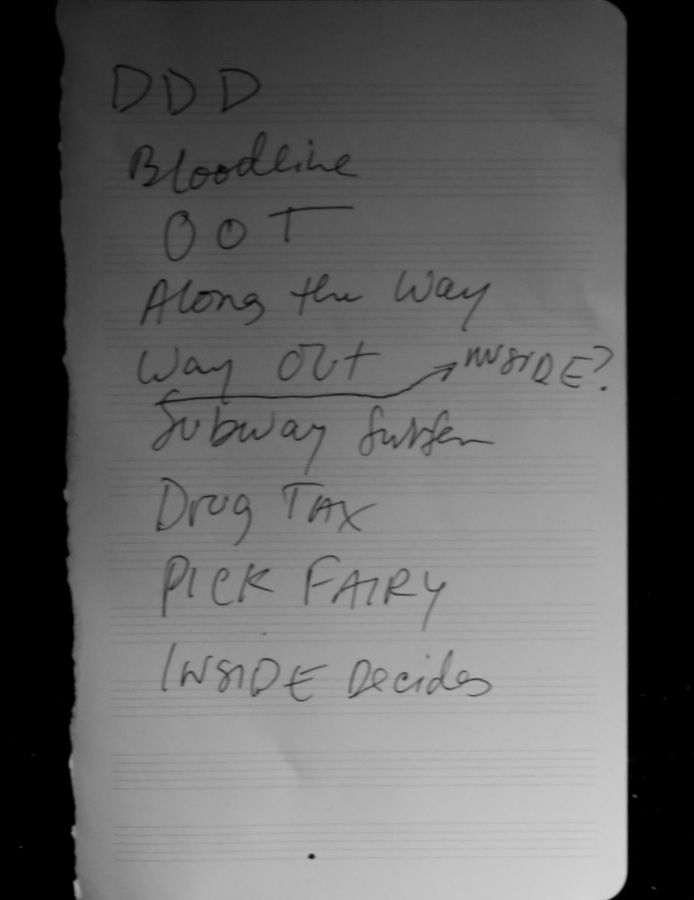 DDD
Bloodline
OOT
Along the Way
Way Out → INSIDE?
Subway
Drug TAX
PICK FAIRY
INSIDE Decides